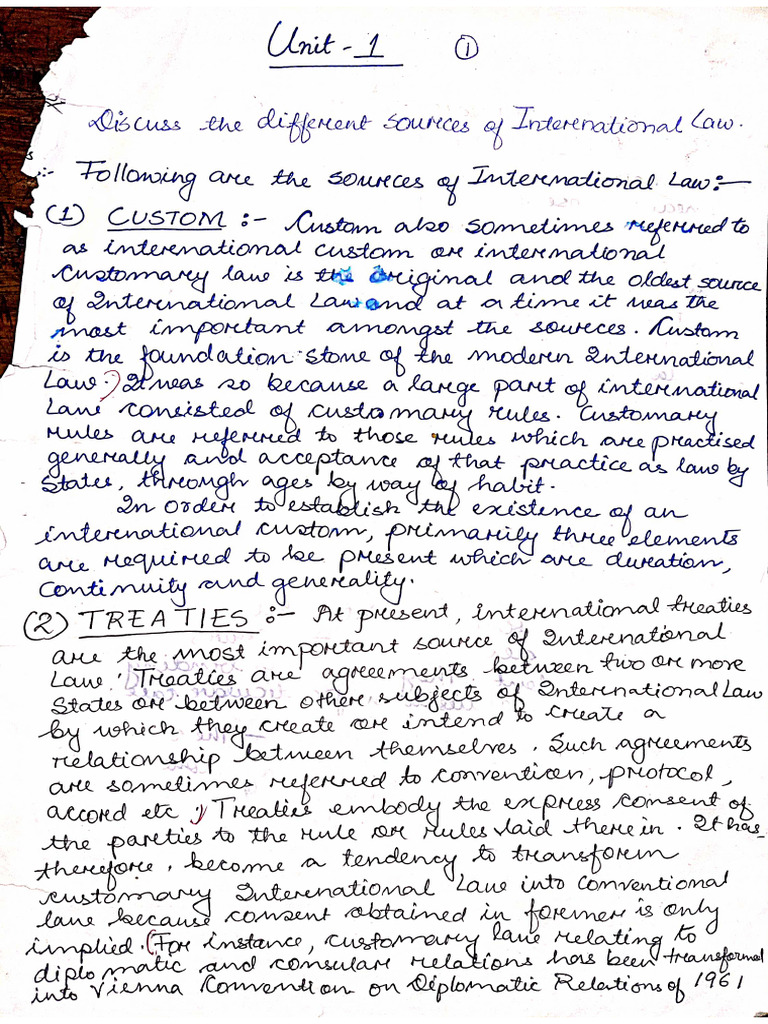 Unit - 1 ①
Discuss the different sources of International Law.
:- Following are the sources of International Law:-
(1) CUSTOM :- Custom also sometimes referred to
as international custom or international
Customary law is the original and the oldest source
of International Law and at a time it was the
most important amongst the sources. Custom
is the foundation stone of the modern International
Law.) It was so because a large part of international
Law consisted of customary rules. Customary
rules are referred to those rules which are practised
generally and acceptance of that practice as law by
States, through ages by way of habit.
In order to establish the existence of an
international custom, primarily three elements
are required to be present which are duration,
Continuity and generality.
(2) TREATIES :- At present, international treaties
are the most important source of International
Law. Treaties are agreements between two or more
States or between other subjects of International Law
by which they create or intend to create a
relationship between themselves. Such agreements
are sometimes referred to convention, protocol,
accord etc.) Treaties embody the express consent of
the parties to the rule or rules laid there in. It has,
therefore, become a tendency to transform
customary International Law into Conventional
law because consent obtained in former is only
implied. (For instance, customary law relating to
diplomatic and consular relations has been transformed
into Vienna Convention on Diplomatic Relations of 1961